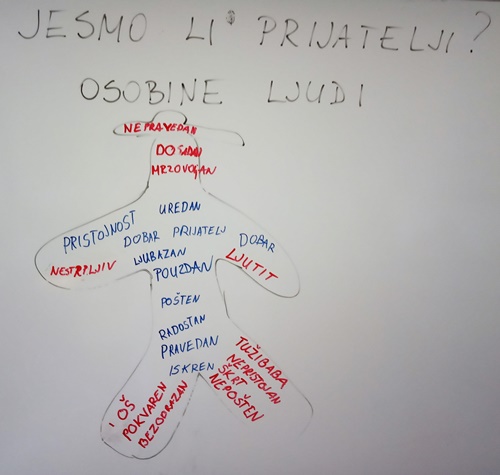 JESMO LI PRIJATELJI?
OSOBINE LJUDI
NEPRAVEDAN
DOSADAN
MRZOVOLJAN
UREDAN
PRISTOJNOST
DOBAR PRIJATELJ
DOBAR
NESTRPLJIV
LJUBAZAN
LJUTIT
POUZDAN
POŠTEN
RADOSTAN
PRAVEDAN
ISKREN
LOŠ
POKVAREN
BEZOBRAZAN
TUŽIBABA
NEPRISTOJAN
ŠKRT
NEPOŠTEN